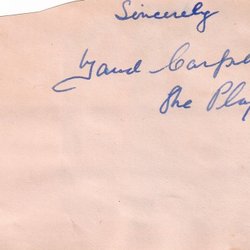 Sincerely
Maud Carp
The Play